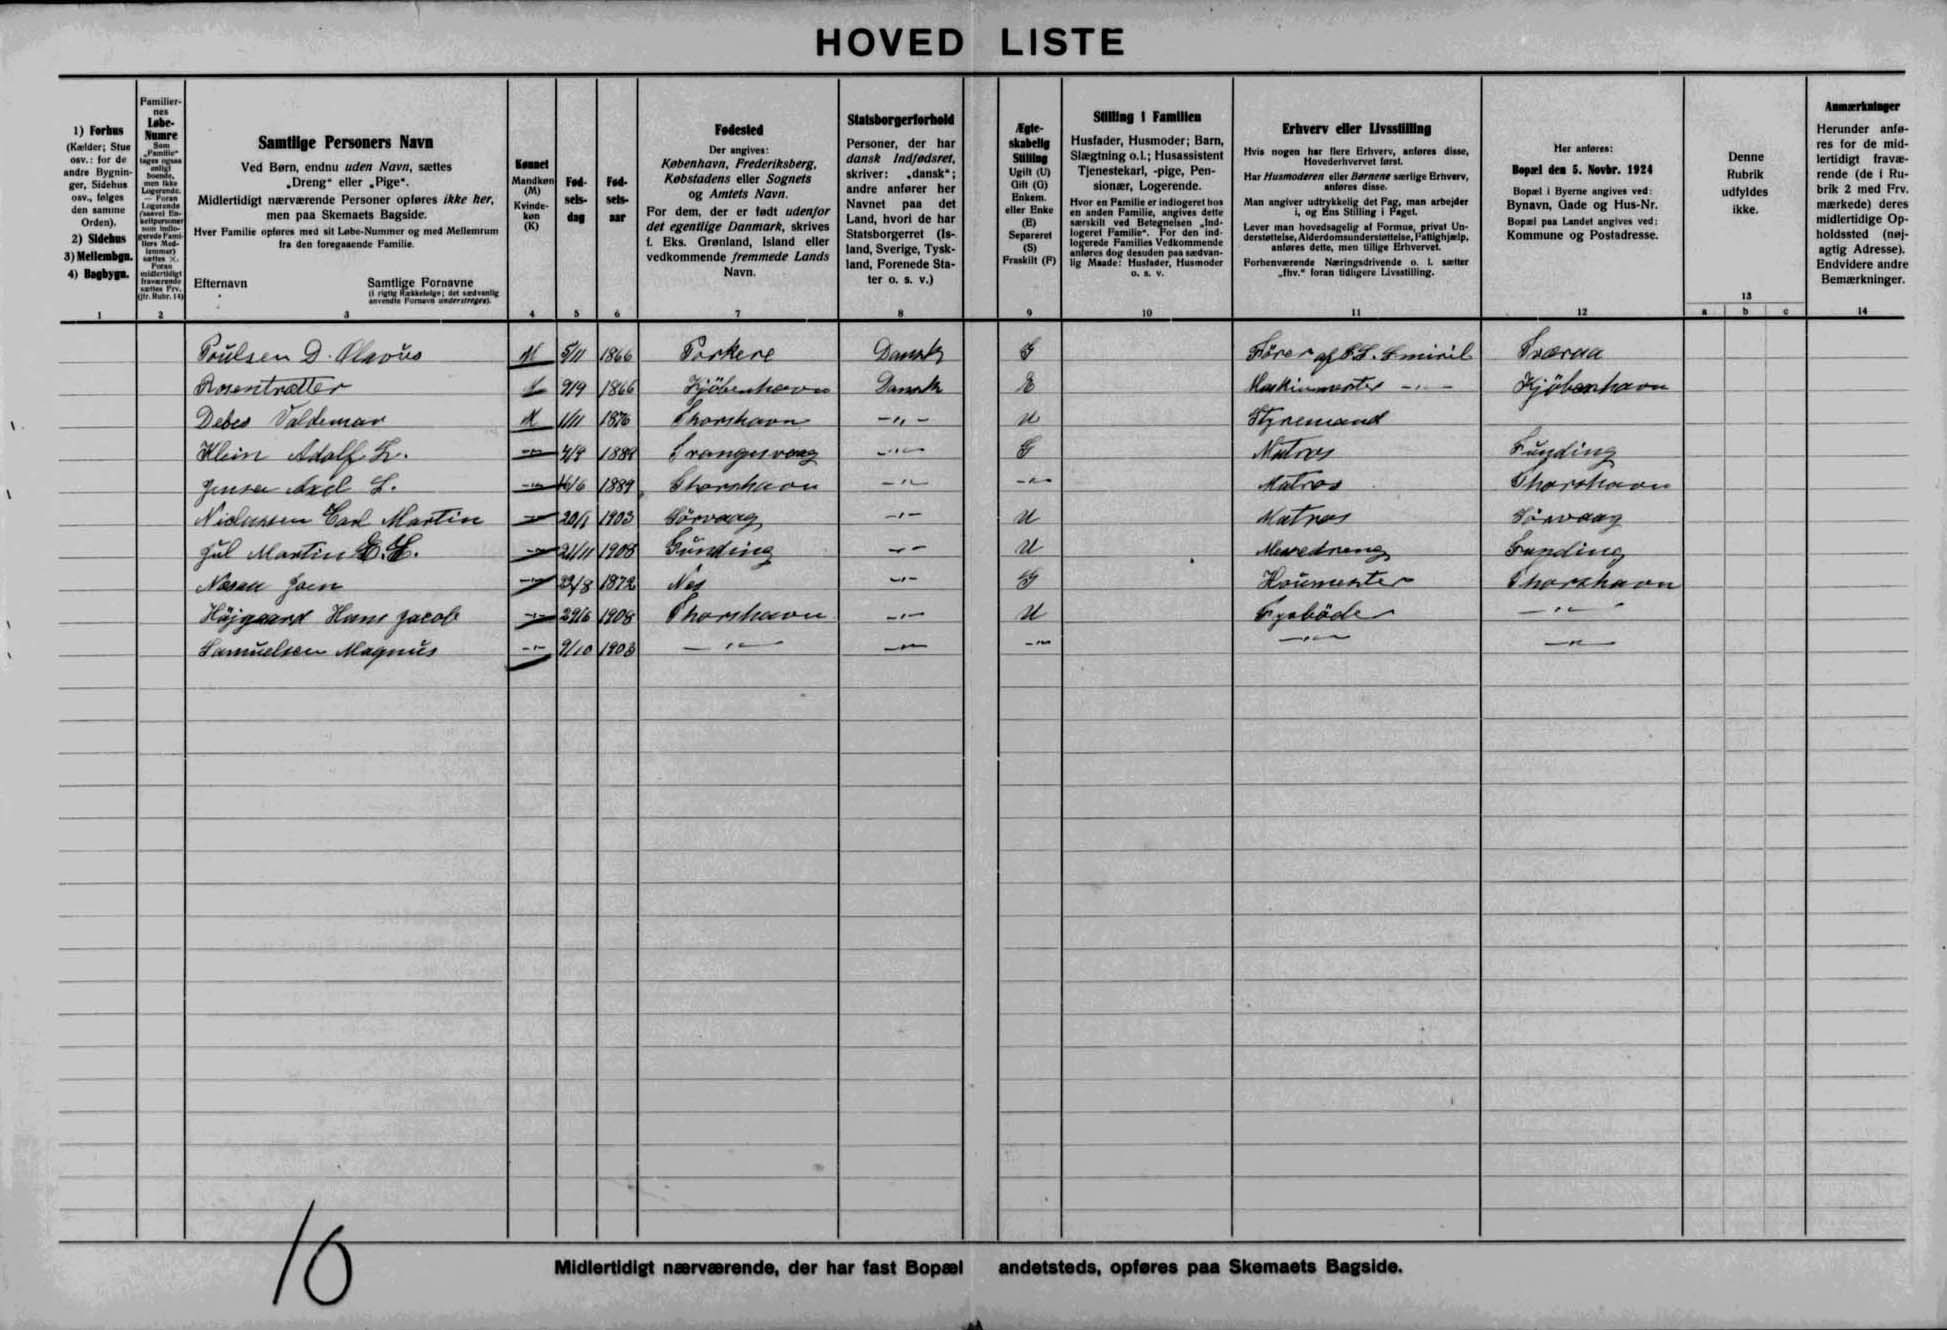 HOVED LISTE
1) Forhus
(Kælder; Stue
osv.: for de
andre Bygnin-
ger, Sidehus
osv., følges
den samme
Orden).
2) Sidehus
3) Mellembgn.
4) Bagbygn.
1
Familier-
nes
Løbe-
Numre
Som
„Familie“
tages ogsaa
enligt
boende,
men ikke
Logerende.
— Foran
Logerende
(saavel En-
keltpersoner
som indlo-
gerede Fami-
liers Med-
lemmer)
sættes ×.
Foran
midlertidigt
fraværende
sættes Frv.
(jfr. Rubr. 14)
2
Samtlige Personers Navn
Ved Børn, endnu uden Navn, sættes
„Dreng“ eller „Pige“.
Midlertidigt nærværende Personer opføres ikke her,
men paa Skemaets Bagside.
Hver Familie opføres med sit Løbe-Nummer og med Mellemrum
fra den foregaaende Familie.
Efternavn Samtlige Fornavne
(i rigtig Rækkefølge; det sædvanlig
anvendte Fornavn understreges).
3
Kønnet
Mandkøn
(M)
Kvinde-
køn
(K)
4
Fød-
sels-
dag
5
Fød-
sels-
aar
6
Fødested
Der angives:
København, Frederiksberg,
Købstadens eller Sognets
og Amtets Navn.
For dem, der er født udenfor
det egentlige Danmark, skrives
f. Eks. Grønland, Island eller
vedkommende fremmede Lands
Navn.
7
Statsborgerforhold
Personer, der har
dansk Indfødsret,
skriver: „dansk“;
andre anfører her
Navnet paa det
Land, hvori de har
Statsborgerret (Is-
land, Sverige, Tysk-
land, Forenede Sta-
ter o. s. v.)
8
Ægte-
skabelig
Stilling
Ugift (U)
Gift (G)
Enkem.
eller Enke
(E)
Separeret
(S)
Fraskilt (F)
9
Stilling i Familien
Husfader, Husmoder; Barn,
Slægtning o.l.; Husassistent
Tjenestekarl, -pige, Pen-
sionær, Logerende.
Hvor en Familie er indlogeret hos
en anden Familie, angives dette
særskilt ved Betegnelsen „Ind-
logeret Familie“. For den ind-
logerede Families Vedkommende
anføres dog desuden paa sædvan-
lig Maade: Husfader, Husmoder
o. s. v.
10
Erhverv eller Livsstilling
Hvis nogen har flere Erhverv, anføres disse,
Hovederhvervet først.
Har Husmoderen eller Børnene særlige Erhverv,
anføres disse.
Man angiver udtrykkelig det Fag, man arbejder
i, og Ens Stilling i Faget.
Lever man hovedsagelig af Formue, privat Un-
derstøttelse, Alderdomsunderstøttelse, Fattighjælp,
anføres dette, men tillige Erhvervet.
Forhenværende Næringsdrivende o. l. sætter
„fhv.“ foran tidligere Livsstilling.
11
Her anføres:
Bopæl den 5. Novbr. 1924
Bopæl i Byerne angives ved:
Bynavn, Gade og Hus-Nr.
Bopæl paa Landet angives ved:
Kommune og Postadresse.
12
Denne
Rubrik
udfyldes
ikke.
13
a b c
Anmærkninger
Herunder anfø-
res for de mid-
lertidigt fravæ-
rende (de i Ru-
brik 2 med Frv.
mærkede) deres
midlertidige Op-
holdssted (nøj-
agtig Adresse).
Endvidere andre
Bemærkninger.
14
Poulsen D. Olavus M 5/11 1866 Porkere Dansk G Fører af S.S. Smiril Tværaa
Rosentrætter 9/9 1866 Kjöbenhavn Dansk E Maskinmester -"- Kjöbenhavn
Debes Valdemar M 1/11 1876 Thorshavn -"- U Styremand
Klein Adolf -"- 1888 Trangisvaag -"- G Matros Funding
Jensen Axel -"- 1889 Thorshavn -"- -"- Matros Thorshavn
Niclassen Carl Martin -"- 1903 Sörvaag -"- U Matros Sörvaag
Jul Martin -"- 21/11 1908 Funding -"- U Messedreng Funding
Joen -"- 22/8 1872 Nes -"- G Hovmester Thorshavn
Höjgaard Hans Jacob -"- 29/6 1908 Thorshavn -"- U Fyrböder -"-
Samuelsen Magnus -"- 9/10 1903 -"- -"- -"- -"- -"-
10
Midlertidigt nærværende, der har fast Bopæl andetsteds, opføres paa Skemaets Bagside.